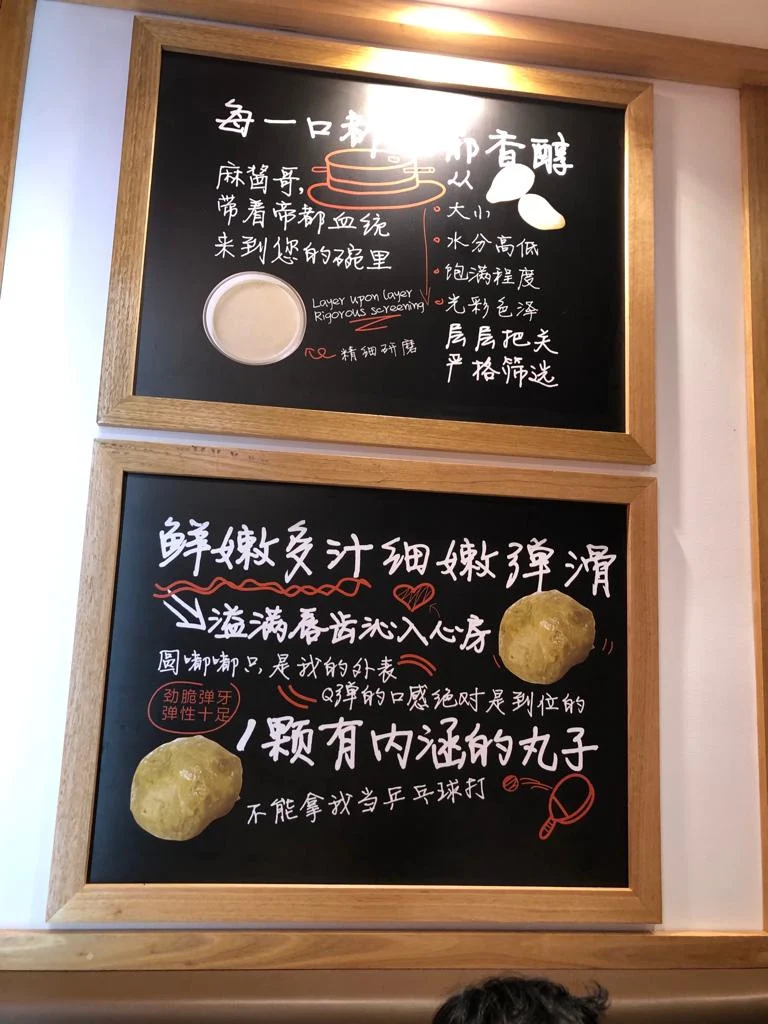 每一口都 郁香醇
麻酱哥,
带着帝都血统
来到您的碗里
Layer upon layer
Rigorous screening
精细研磨
从
大小
水分高低
饱满程度
光彩色泽
层层把关
严格筛选
鲜嫩多汁细嫩弹滑
溢满唇齿沁入心房
圆嘟嘟只是我的外表
Q弹的口感绝对是到位的
劲脆弹牙
弹性十足
1颗有内涵的丸子
不能拿我当乒乓球打